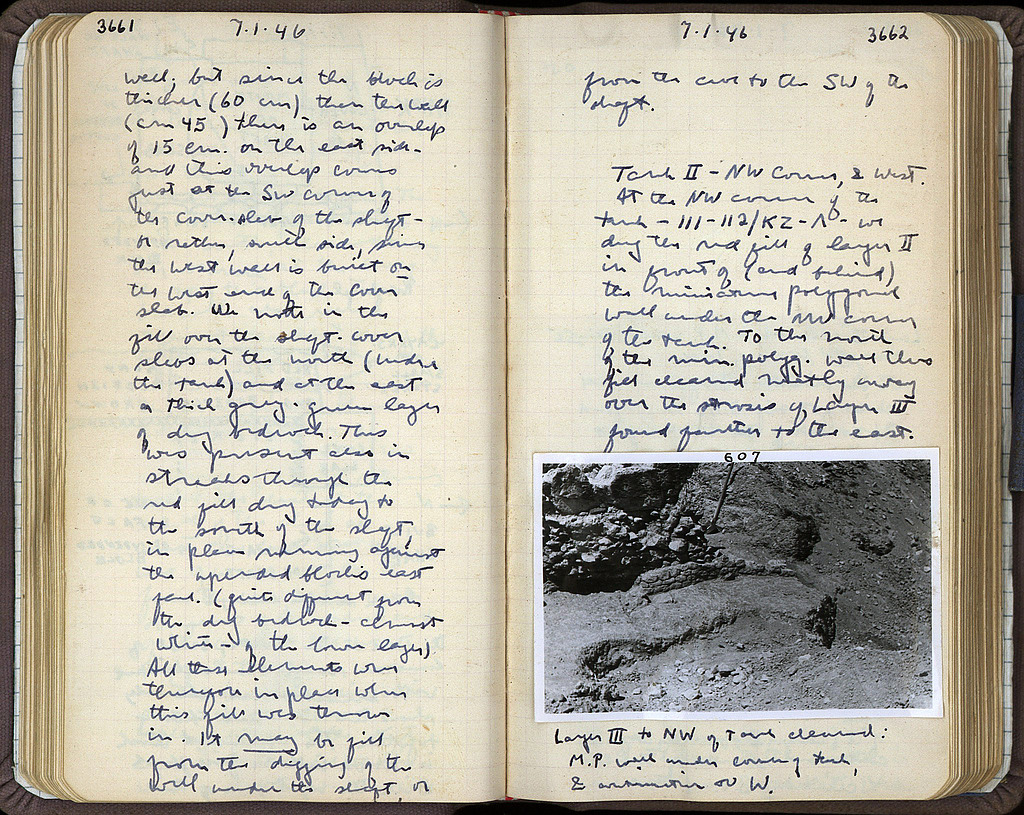 3661
7.1.46
well; but since the block is
thicker (60 cm) than the wall
(cm 45) there is an overlap
of 15 cm. on the east side –
and this overlap comes
just at the SW corner of
the cover-slab of the shaft –
or rather, south side, since
the west wall is built on
the west end of the cover
slab. We note in the
fill over the shaft-cover
slabs at the north (under
the tank) and at the east
a thick grey-green layer
of dug bedrock. This
was present also in
streaks through the
red fill dug today to
the south of the shaft,
in places running against
the upended block's east
face. (quite different from
the dug bedrock – almost
white – of the lower layer)
All these elements were
therefore in place when
this fill was thrown
in. It may be fill
from the digging of the
well under the shaft, or
7.1.46
3662
from the cave to the SW of the
shaft.
Tank II – NW corner, & west.
At the NW corner of the
tank – 111-112/KZ-Λ – we
dug the red fill of layer II
in front of (and behind)
the miniature polygonal
wall under the NW corner
of the tank. To the north
of the min. polyg. wall this
fill cleared neatly away
over the strosis of Layer III
found further to the east.
607
Layer III to NW of Tank cleared:
M.P. wall under corner of tank,
& continuation to W.